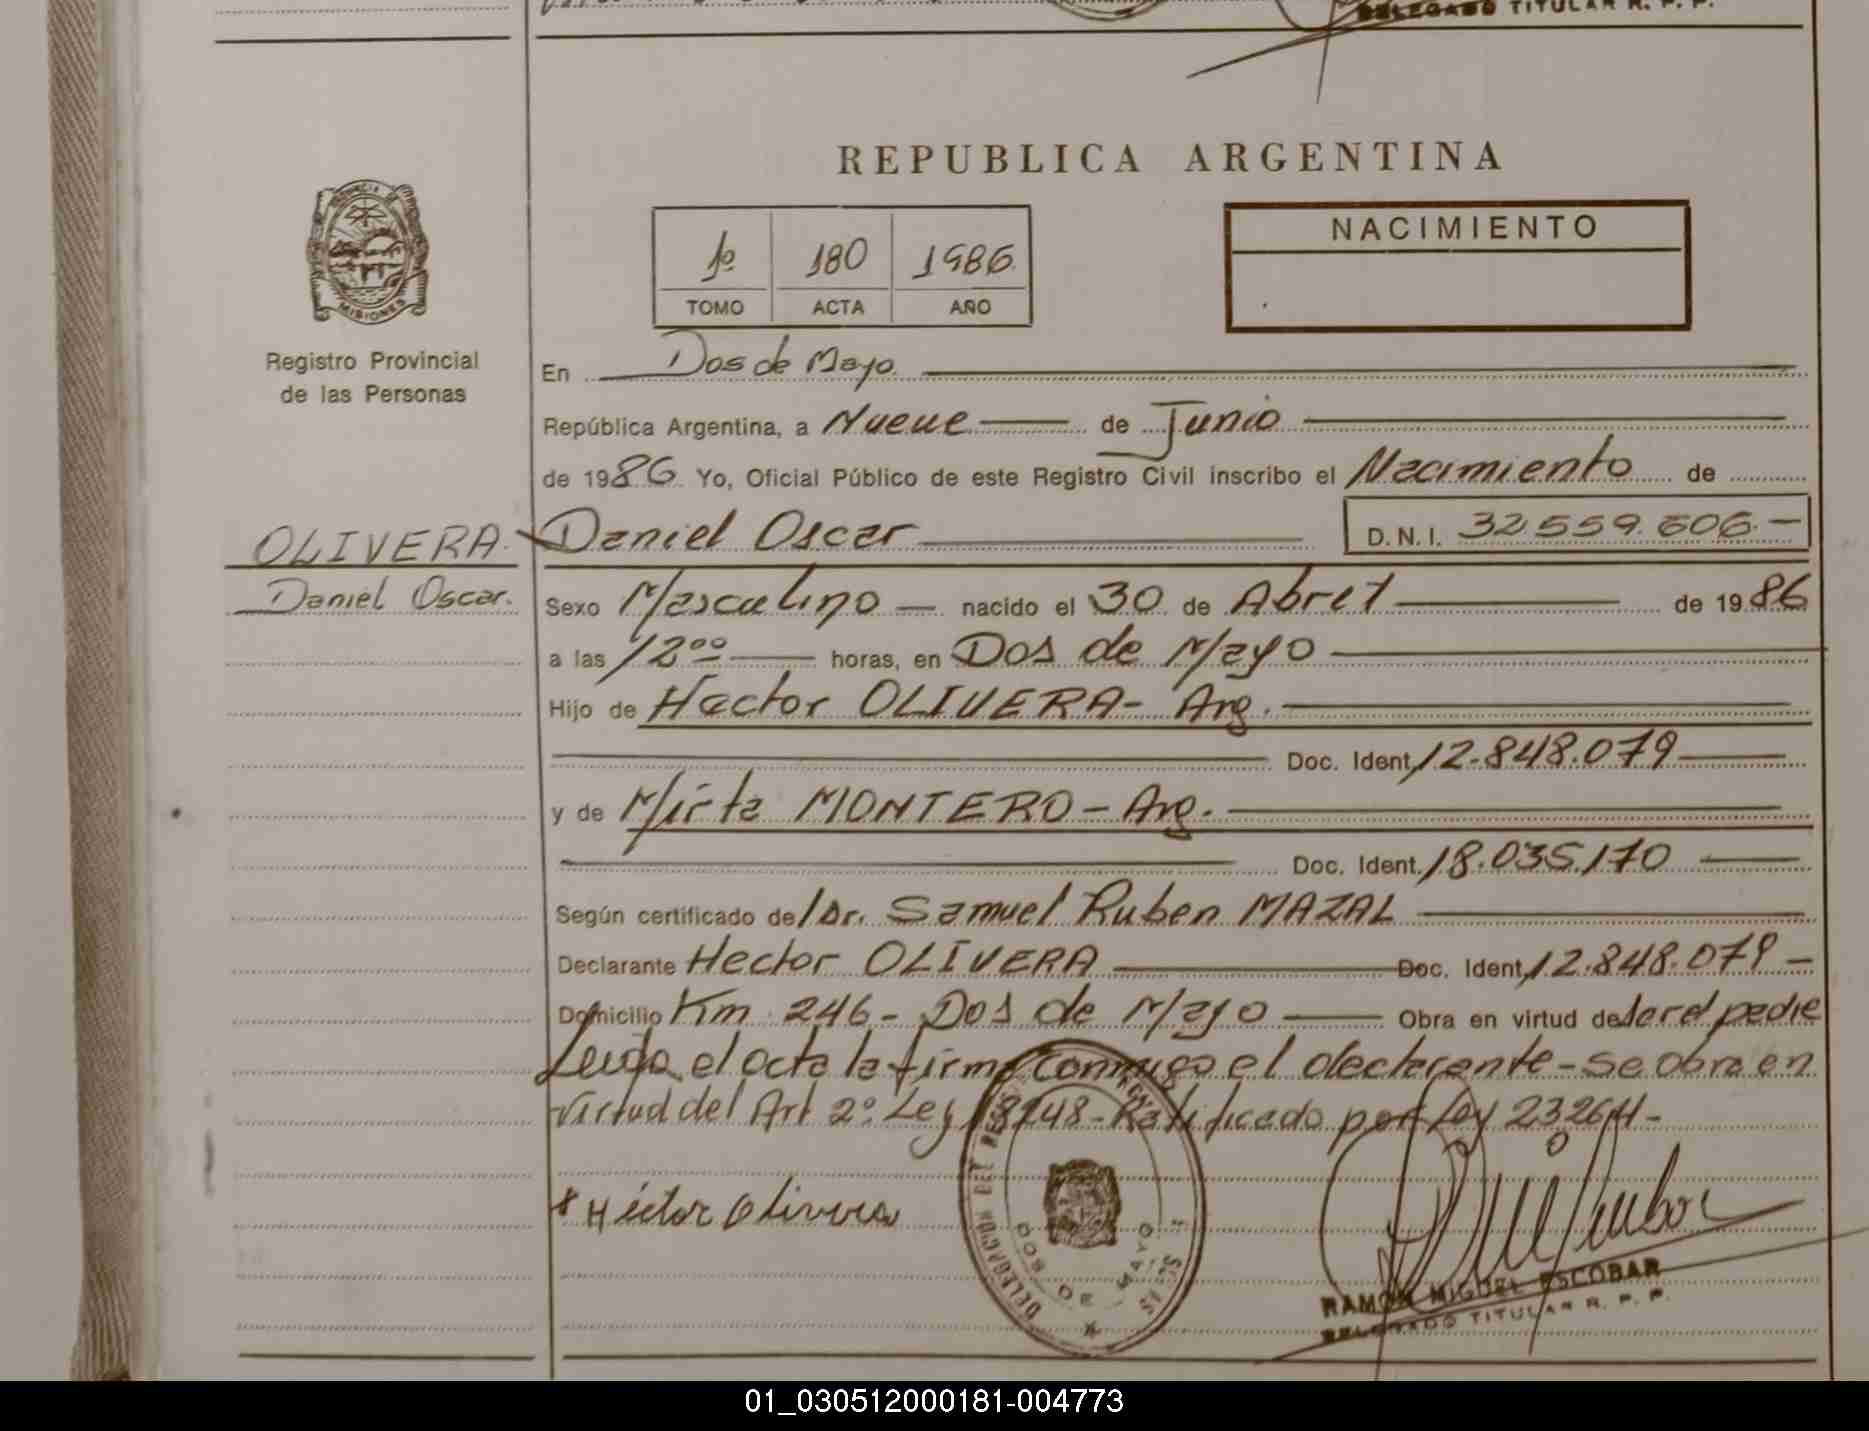 DELEGADO TITULAR R. P. P.
REPUBLICA ARGENTINA
PROVINCIA DE
MISIONES
Registro Provincial
de las Personas
1º 180 1986
TOMO ACTA AÑO
NACIMIENTO
En Dos de Mayo
República Argentina, a Nueve de Junio
de 1986 Yo, Oficial Público de este Registro Civil inscribo el Nacimiento de
OLIVERA Daniel Oscar D.N.I. 32.559.606.-
Daniel Oscar.
Sexo Masculino nacido el 30 de Abril de 1986
a las 12ºº horas, en Dos de Mayo
Hijo de Hector OLIVERA- Arg.
Doc. Ident. 12.848.079
y de Mirta MONTERO - Arg.
Doc. Ident. 18.035.170
Según certificado del Dr. Samuel Ruben MAZAL
Declarante Hector OLIVERA Doc. Ident. 12.848.079 -
Domicilio Km 246 - Dos de Mayo Obra en virtud de ser el padre
Leida el acta la firma conmigo el declarante - se obra en
virtud del Art 2º Ley 18248 - Ratificado por Ley 23264 -
x Héctor Olivera
DELEGACION DEL
DOS DE MAYO
RAMON MIGUEL ESCOBAR
DELEGADO TITULAR R. P. P.
01_030512000181-004773